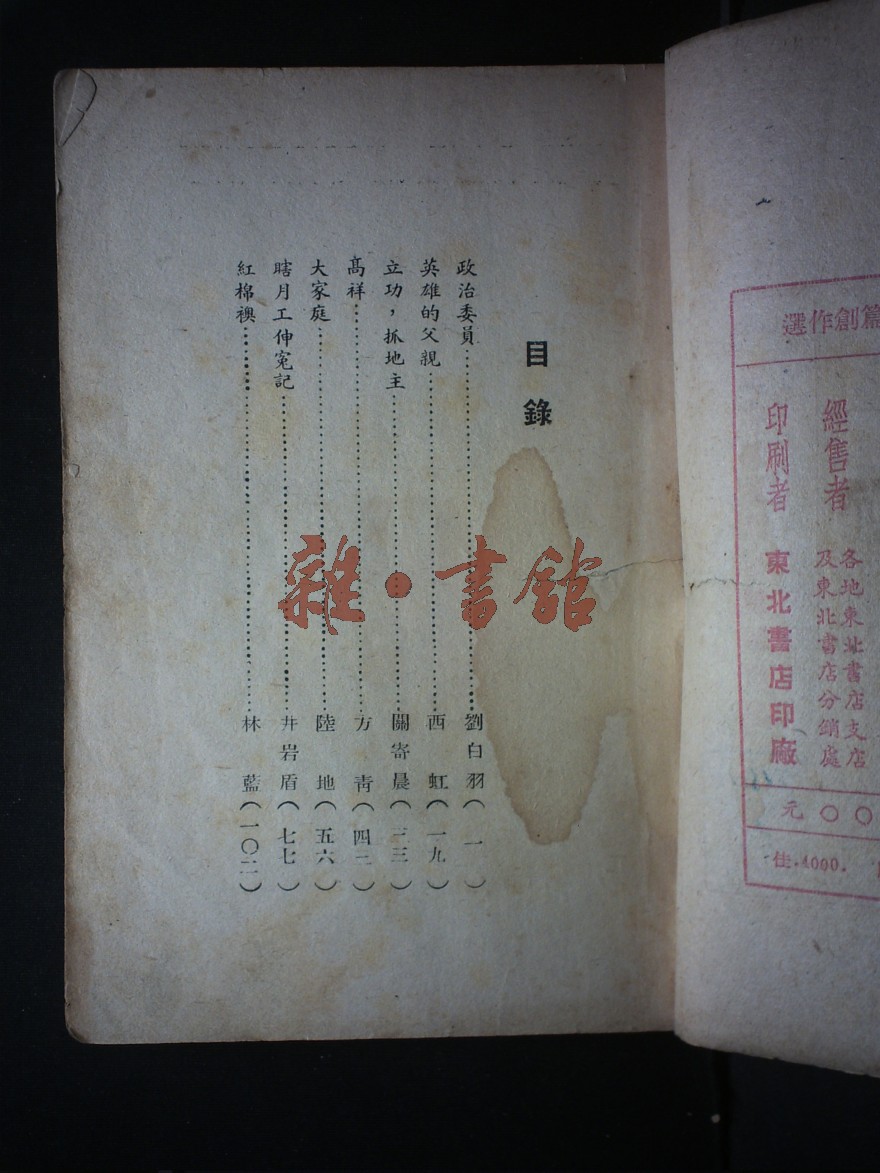 選作創篇
經售者
各地東北書店支店
及東北書店分銷處
印刷者 東北書店印廠
元〇〇
佳.4000.
目錄
政治委員……劉白羽（一）
英雄的父親……西虹（一九）
立功，抓地主……關寄晨（三三）
高祥……方青（四二）
大家庭……陸地（五六）
瞎月工伸冤記……井岩盾（七七）
紅棉襖……林藍（一〇二）
雜·書館